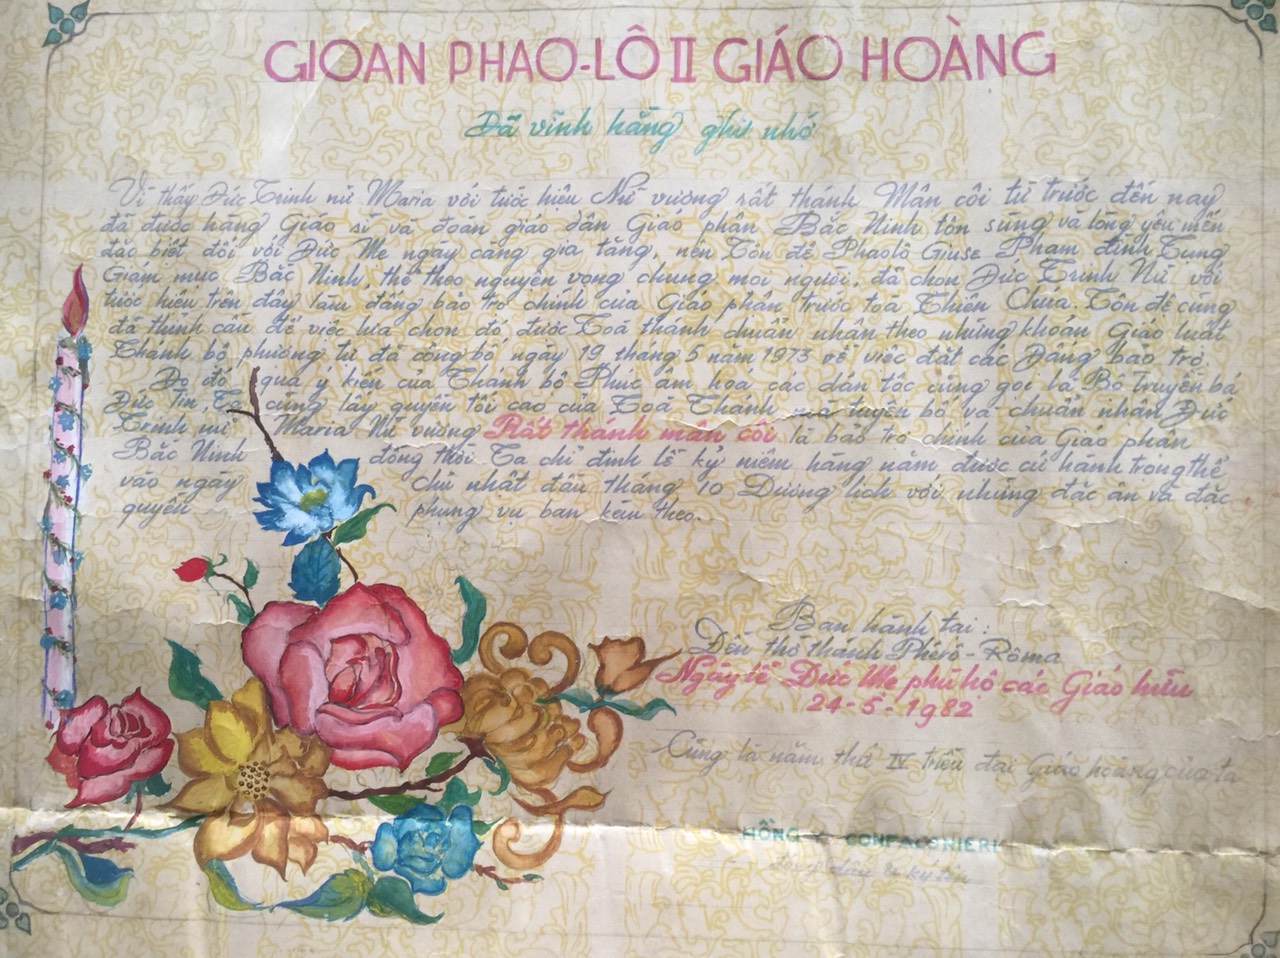 GIOAN PHAO-LÔ II GIÁO HOÀNG
Đã vĩnh hằng ghi nhớ
Vì thấy Đức Trinh nữ Maria với tước hiệu Nữ vương rất thánh Mân côi từ trước đến nay
đã được hàng Giáo sĩ và đoàn giáo dân Giáo phận Bắc Ninh tôn sùng và lòng yêu mến
đặc biệt đối với Đức Mẹ ngày càng gia tăng, nên Tôn đệ Phaolô Giuse Phạm đình Tụng
Giám mục Bắc Ninh, thể theo nguyện vọng chung mọi người, đã chọn Đức Trinh Nữ với
tước hiệu trên đây làm đấng bảo trợ chính của Giáo phận trước toà Thiên Chúa. Tôn đệ cũng
đã thỉnh cầu để việc lựa chọn đó, được Toà thánh chuẩn nhận theo những khoản Giáo luật
Thánh bộ phượng tự đã công bố, ngày 19 tháng 5 năm 1973 về việc đặt các Đấng bảo trợ.
Do đó, qua ý kiến của Thánh bộ Phúc âm hoá các dân tộc cũng gọi là Bộ Truyền bá
Đức Tin, Ta cũng lấy quyền tối cao của Toà Thánh tuyên bố và chuẩn nhận Đức
Trinh nữ Maria Nữ vương Rất thánh mân côi là bảo trợ chính của Giáo phận
Bắc Ninh đồng thời Ta chỉ định lễ kỷ niệm hàng năm được cử hành trọng thể
vào ngày Chủ nhật đầu tháng 10 Dương lịch với những đặc ân và đặc
quyền phụng vụ ban kèm theo.
Ban hành tại:
Đền thờ thánh Phêrô - Rôma
Ngày lễ Đức Mẹ phù hộ các Giáo hữu
24-5-1982
Cũng là năm thứ IV triều đại Giáo hoàng của ta
HỒNG Y CONFACONIERI